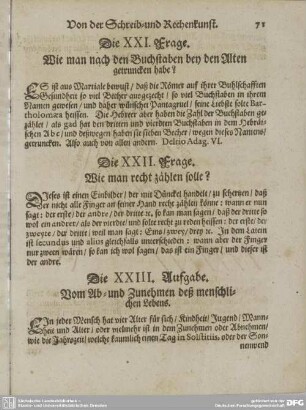 Von der Schreib-und Rechenkunst. 71
Die XXI. Frage.
Wie man nach den Buchstaben bey den Alten
getruncken habe?
ES ist aus Martiale bewust / daß die Römer auf ihrer Buhlschafften
Gesundheit so viel Becher ausgezecht / so viel Buchstaben in ihrem
Namen gewesen / und daher wälscher Pantagruel / seine Liebste solte Bar-
tholomæa heissen. Die Hebreer aber haben die Zahl der Buchstaben ge-
zählet / als גד hat den dritten und vierdten Buchstaben in dem Hebräi-
schen Abc / und deßwegen haben sie sieben Becher / wegen dieses Namens /
getruncken. Also auch von allen andern. Delrio Adag. VI.
Die XXII. Frage.
Wie man recht zählen solle?
Dieses ist einen Einbilder / der mit Dünckel handelt / zu scherzen / daß
er nicht alle Finger an seiner Hand recht zählen könne: wann er nun
sagt: der erste / der andre / der dritte rc. so kan man sagen / daß der dritte so
wol ein andrer / als der vierdte / und solte recht zu reden heissen: der erste / der
zweyte / der dritte / weil man sagt: Eins / zwey / drey rc. In dem Latein
ist secundus und alius gleichfalls unterschieden: wann aber der Finger
nur zween wären / so kan ich wol sagen / das ist ein Finger / und dieser ist
der andre.
Die XXIII. Aufgabe.
Vom Ab- und Zunehmen deß menschli-
chen Lebens.
EIn jeder Mensch hat vier Alter für sich / Kindheit / Jugend / Mann-
heit und Alter: oder vielmehr ist in dem Zunehmen oder Abnehmen /
wie die Jahrszeit / welche kaumlich einen Tag in Solstitiis, oder der Son-
nenwend